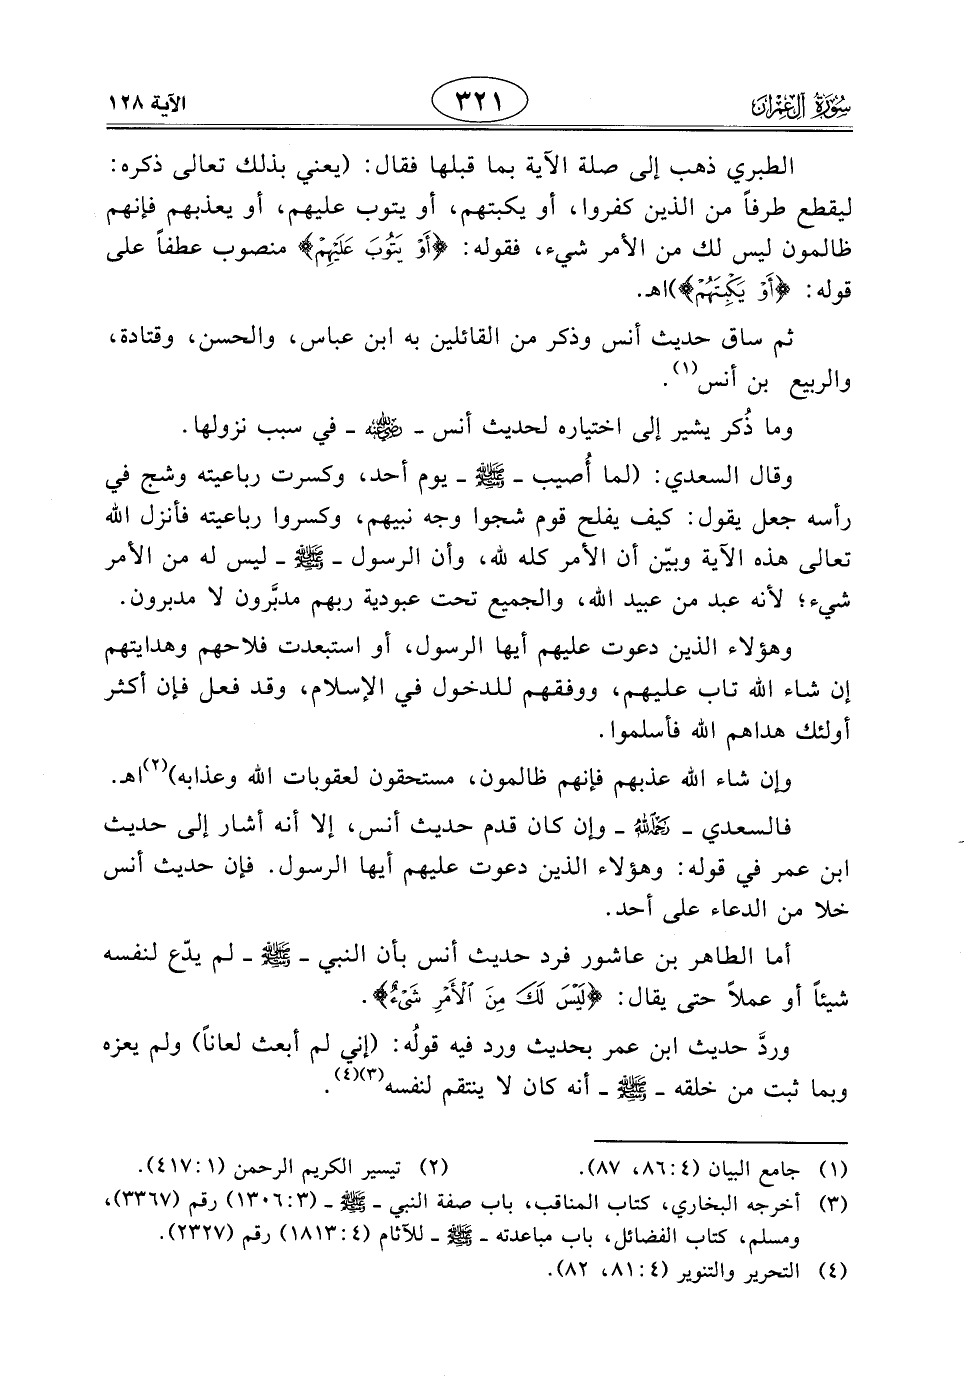 سورة آل عمران ٣٢١ الآية ١٢٨
الطبري ذهب إلى صلة الآية بما قبلها فقال: (يعني بذلك تعالى ذكره:
ليقطع طرفاً من الذين كفروا، أو يكبتهم، أو يتوب عليهم، أو يعذبهم فإنهم
ظالمون ليس لك من الأمر شيء، فقوله: ﴿أَوْ يَتُوبَ عَلَيْهِمْ﴾ منصوب عطفاً على
قوله: ﴿أَوْ يَكْبِتَهُمْ﴾)اهـ.
ثم ساق حديث أنس وذكر من القائلين به ابن عباس، والحسن، وقتادة،
والربيع بن أنس(١).
وما ذُكر يشير إلى اختياره لحديث أنس ـ رضي الله عنه ـ في سبب نزولها.
وقال السعدي: (لما أُصيب ـ ﷺ ـ يوم أحد، وكسرت رباعيته وشج في
رأسه جعل يقول: كيف يفلح قوم شجوا وجه نبيهم، وكسروا رباعيته فأنزل الله
تعالى هذه الآية وبيّن أن الأمر كله لله، وأن الرسول ـ ﷺ ـ ليس له من الأمر
شيء؛ لأنه عبد من عبيد الله، والجميع تحت عبودية ربهم مدبَّرون لا مدبرون.
وهؤلاء الذين دعوت عليهم أيها الرسول، أو استبعدت فلاحهم وهدايتهم
إن شاء الله تاب عليهم، ووفقهم للدخول في الإسلام، وقد فعل فإن أكثر
أولئك هداهم الله فأسلموا.
وإن شاء الله عذبهم فإنهم ظالمون، مستحقون لعقوبات الله وعذابه)(٢)اهـ.
فالسعدي ـ رحمه الله ـ وإن كان قدم حديث أنس، إلا أنه أشار إلى حديث
ابن عمر في قوله: وهؤلاء الذين دعوت عليهم أيها الرسول. فإن حديث أنس
خلا من الدعاء على أحد.
أما الطاهر بن عاشور فرد حديث أنس بأن النبي ـ ﷺ ـ لم يدّع لنفسه
شيئاً أو عملاً حتى يقال: ﴿لَيْسَ لَكَ مِنَ ٱلْأَمْرِ شَىْءٌ﴾.
وردَّ حديث ابن عمر بحديث ورد فيه قولُه: (إني لم أبعث لعاناً) ولم يعزه
وبما ثبت من خلقه ـ ﷺ ـ أنه كان لا ينتقم لنفسه(٣)(٤).
(١) جامع البيان (٤: ٨٦، ٨٧). (٢) تيسير الكريم الرحمن (١: ٤١٧).
(٣) أخرجه البخاري، كتاب المناقب، باب صفة النبي ـ ﷺ ـ (٣: ١٣٠٦) رقم (٣٣٦٧)،
ومسلم، كتاب الفضائل، باب مباعدته ـ ﷺ ـ للآثام (٤: ١٨١٣) رقم (٢٣٢٧).
(٤) التحرير والتنوير (٤: ٨١، ٨٢).